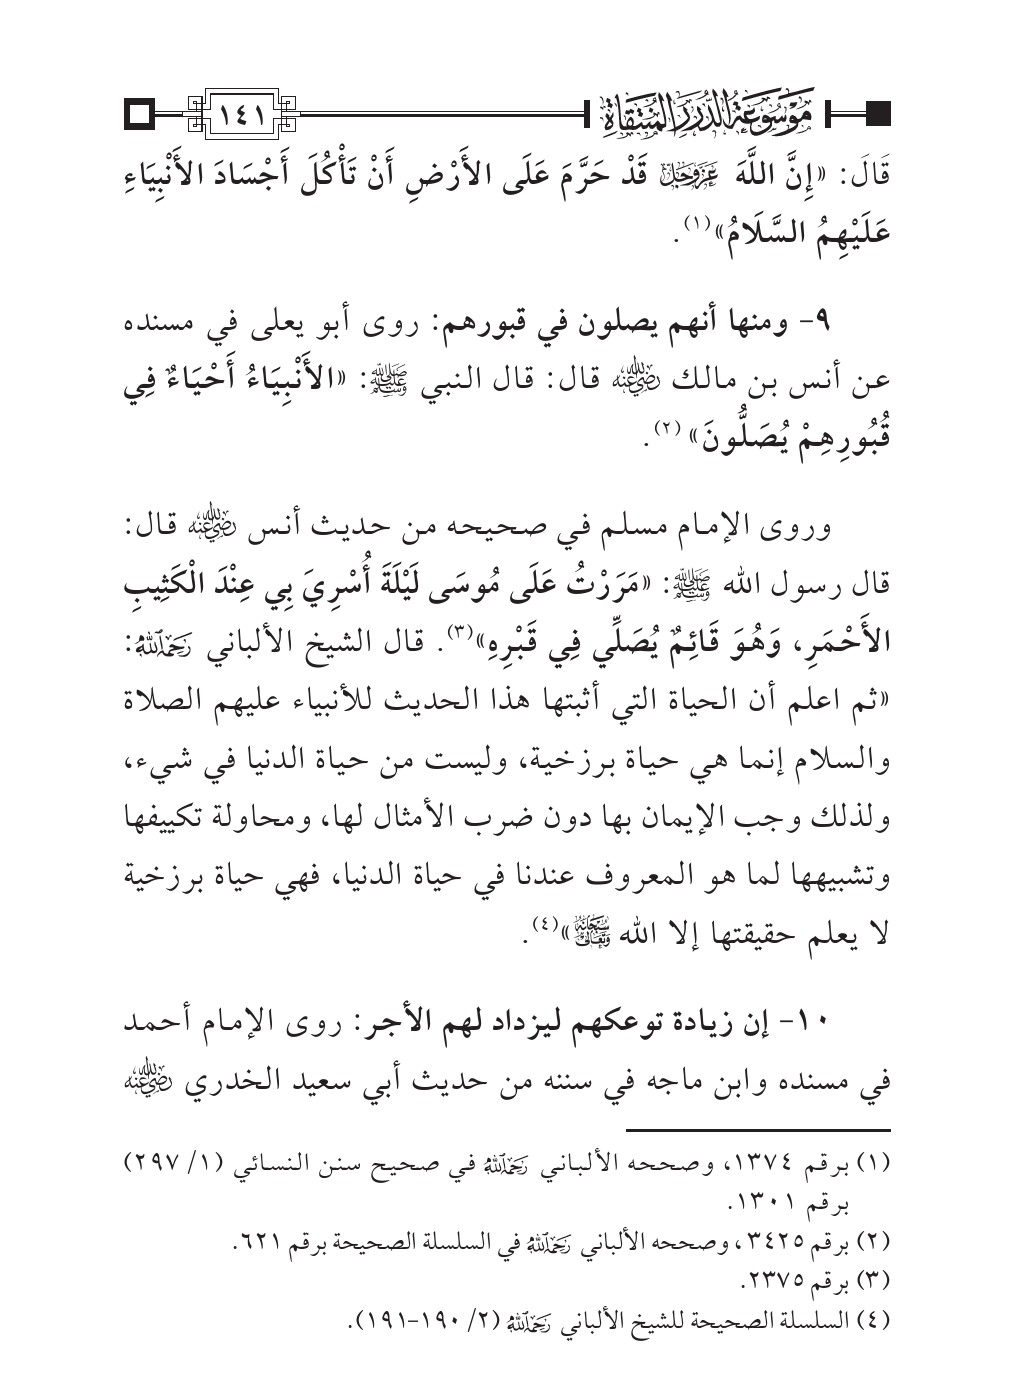 موسوعة الدرر المنتقاة
١٤١
قَالَ: «إِنَّ اللَّهَ عَزَّ وَجَلَّ قَدْ حَرَّمَ عَلَى الأَرْضِ أَنْ تَأْكُلَ أَجْسَادَ الأَنْبِيَاءِ
عَلَيْهِمُ السَّلَامُ»(١).
٩- ومنها أنهم يصلون في قبورهم: روى أبو يعلى في مسنده
عن أنس بن مالك رضي الله عنه قال: قال النبي ﷺ: «الأَنْبِيَاءُ أَحْيَاءٌ فِي
قُبُورِهِمْ يُصَلُّونَ» (٢).
وروى الإمام مسلم في صحيحه من حديث أنس رضي الله عنه قال:
قال رسول الله ﷺ: «مَرَرْتُ عَلَى مُوسَى لَيْلَةَ أُسْرِيَ بِي عِنْدَ الْكَثِيبِ
الأَحْمَرِ، وَهُوَ قَائِمٌ يُصَلِّي فِي قَبْرِهِ»(٣). قال الشيخ الألباني رحمه الله:
«ثم اعلم أن الحياة التي أثبتها هذا الحديث للأنبياء عليهم الصلاة
والسلام إنما هي حياة برزخية، وليست من حياة الدنيا في شيء،
ولذلك وجب الإيمان بها دون ضرب الأمثال لها، ومحاولة تكييفها
وتشبيهها لما هو المعروف عندنا في حياة الدنيا، فهي حياة برزخية
لا يعلم حقيقتها إلا الله سبحانه وتعالى»(٤).
١٠- إن زيادة توعكهم ليزداد لهم الأجر: روى الإمام أحمد
في مسنده وابن ماجه في سننه من حديث أبي سعيد الخدري رضي الله عنه
(١) برقم ١٣٧٤، وصححه الألباني رحمه الله في صحيح سنن النسائي (١/ ٢٩٧)
برقم ١٣٠١.
(٢) برقم ٣٤٢٥، وصححه الألباني رحمه الله في السلسلة الصحيحة برقم ٦٢١.
(٣) برقم ٢٣٧٥.
(٤) السلسلة الصحيحة للشيخ الألباني رحمه الله (٢/ ١٩٠-١٩١).